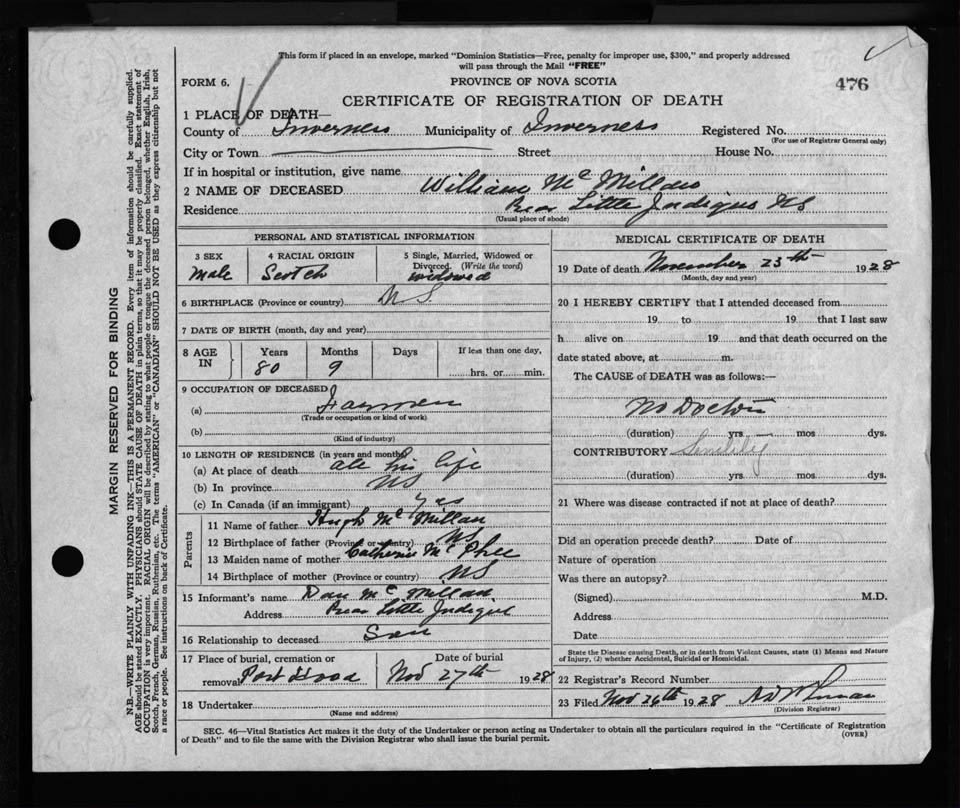 This form if placed in an envelope, marked "Dominion Statistics—Free, penalty for improper use, $300," and properly addressed
will pass through the Mail "FREE"
FORM 6.
PROVINCE OF NOVA SCOTIA
476
CERTIFICATE OF REGISTRATION OF DEATH
1 PLACE OF DEATH—
County of Inverness Municipality of Inverness Registered No.
(For use of Registrar General only)
City or Town Street House No.
If in hospital or institution, give name
2 NAME OF DECEASED William Mc Millan
Residence Rear Little Judique NS
(Usual place of abode)
PERSONAL AND STATISTICAL INFORMATION
3 SEX 4 RACIAL ORIGIN 5 Single, Married, Widowed or
Divorced. (Write the word)
male Scotch widowed
6 BIRTHPLACE (Province or country) NS
7 DATE OF BIRTH (month, day and year)
8 AGE IN Years Months Days If less than one day,
80 9 hrs. or min.
9 OCCUPATION OF DECEASED
(a) Farmer
(Trade or occupation or kind of work)
(b)
(Kind of industry)
10 LENGTH OF RESIDENCE (in years and months)
(a) At place of death all his life
(b) In province NS
(c) In Canada (if an immigrant) yes
Parents
11 Name of father Hugh Mc Millan
12 Birthplace of father (Province or country) NS
13 Maiden name of mother Catherine Mc Phee
14 Birthplace of mother (Province or country) NS
15 Informant's name Dan Mc Millan
Address Rear Little Judique
16 Relationship to deceased Son
17 Place of burial, cremation or Date of burial
removal Port Hood Nov 27th 1928
18 Undertaker
(Name and address)
MEDICAL CERTIFICATE OF DEATH
19 Date of death November 23th 1928
(Month, day and year)
20 I HEREBY CERTIFY that I attended deceased from
19 to 19 that I last saw
h alive on 19 and that death occurred on the
date stated above, at m.
The CAUSE of DEATH was as follows:—
No Doctor
(duration) yrs mos dys.
CONTRIBUTORY Senility
(duration) yrs. mos dys.
21 Where was disease contracted if not at place of death?
Did an operation precede death? Date of
Nature of operation
Was there an autopsy?
(Signed) M.D.
Address
Date
State the Disease causing Death, or in death from Violent Causes, state (1) Means and Nature
of Injury, (2) whether Accidental, Suicidal or Homicidal.
22 Registrar's Record Number
23 Filed Nov 26th 1928
(Division Registrar)
SEC. 46—Vital Statistics Act makes it the duty of the Undertaker or person acting as Undertaker to obtain all the particulars required in the "Certificate of Registration
of Death" and to file the same with the Division Registrar who shall issue the burial permit.
(OVER)
MARGIN RESERVED FOR BINDING
N.B.—WRITE PLAINLY WITH UNFADING INK—THIS IS A PERMANENT RECORD. Every item of information should be carefully supplied.
AGE should be stated EXACTLY. PHYSICIANS should STATE CAUSE OF DEATH in plain terms, so that it may be properly classified. Exact statement of
OCCUPATION is very important. RACIAL ORIGIN will be described by stating to what people or tongue the deceased person belonged, whether English, Irish,
Scotch, French, German, Russian, Ruthenian, etc. The terms "AMERICAN" or "CANADIAN" SHOULD NOT BE USED as they express citizenship but not
a race or people. See instructions on back of Certificate.